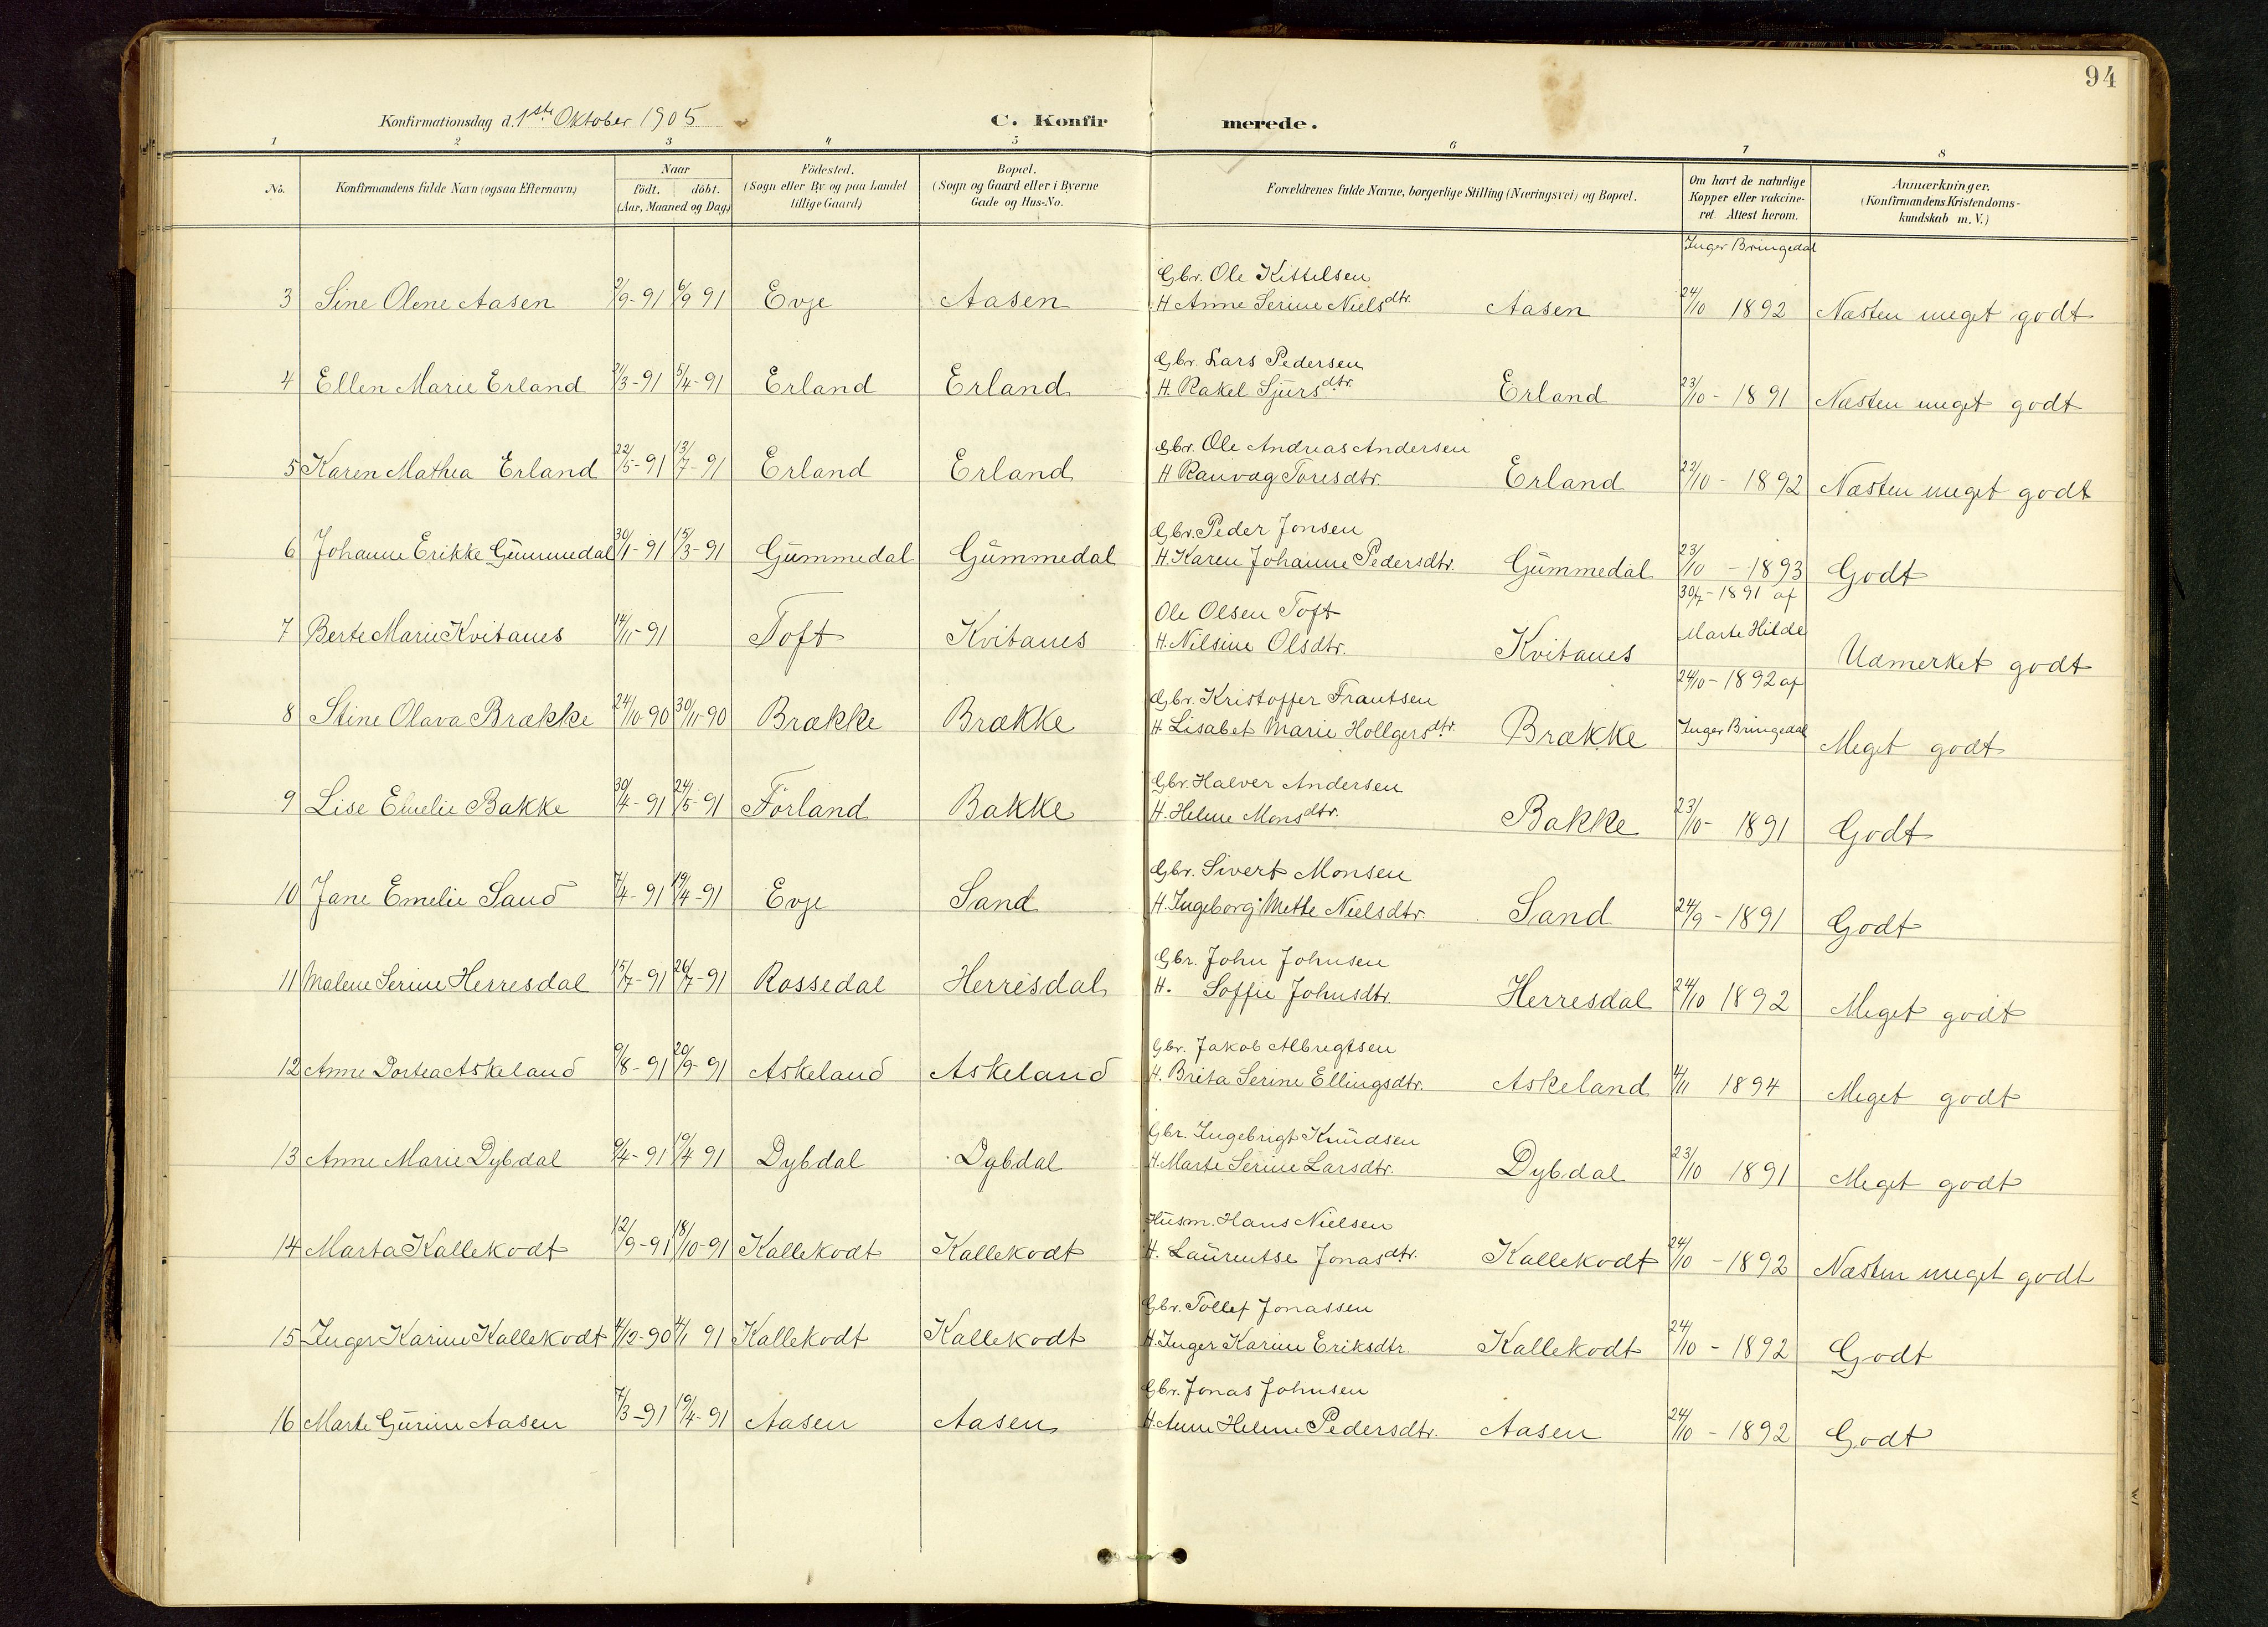 94
Konfirmationsdag d. 1ste Oktober 1905
C. Konfir merede.
1 2 3 4 5 6 7 8
No. Konfirmandens fulde Navn (ogsaa Efternavn) Naar födt. döbt. (Aar, Maaned og Dag.) Födested. (Sogn eller By og paa Landet tillige Gaard) Bopæl. (Sogn og Gaard eller i Byerne Gade og Hus-No. Forældrenes fulde Navne, borgerlige Stilling (Næringsvei) og Bopæl. Om havt de naturlige Kopper eller vakcineret. Attest herom. Anmærkninger. (Konfirmandens Kristendomskundskab m. V.)
Inger Bringedal
Gbr. Ole Kittelsen
3 Sine Olene Aasen 2/9-91 6/9 91 Evje Aasen H Anne Serine Nielsdtr. Aasen 24/10 1892 Næsten meget godt
Gbr. Lars Pedersen
4 Ellen Marie Erland /3-91 5/4-91 Erland Erland H. Rakel Sjursdtr. Erland 23/10 - 1891 Næsten meget godt
Gbr. Ole Andreas Andersen
5 Karen Mathea Erland 22/5-91 13/7-91 Erland Erland H Ranvag Toresdtr. Erland 22/10 - 1892 Næsten meget godt
Gbr. Peder Jonsen
6 Johanne Erikke Gummedal 30/1-91 15/3-91 Gummedal Gummedal H. Karen Johanne Pedersdtr. Gummedal 23/10 - 1893 Godt
30/7-1891 af
Ole Olsen Toft
7 Berte Marie Kvitanes 14/5-91 Toft Kvitanes H. Nilsine Olsdtr. Kvitanes Marte Hilde Udmerket godt
24/10-1892 af
Gbr. Kristoffer Frantsen
8 Stine Olava Brække 24/10-90 30/11-90 Brække Brække H Lisabet Marie Hollgersdtr. Brække Inger Bringedal Meget godt
Gbr. Halver Andersen
9 Lise Emelie Bakke 30/4-91 24/5-91 Förland Bakke H. Helene Monsdtr. Bakke 23/10- 1891 Godt
Gbr. Sivert Monsen
10 Jane Emelie Sand 7/4-91 19/4-91 Evje Sand H. Ingeborg Mette Nielsdtr. Sand 24/9-1891 Godt
Gbr. John Johnsen
11 Malene Serine Herresdal 15/7-91 26/7-91 Rossedal Herresdal H. Soffie Johnsdtr. Herresdal 24/10 1892 Meget godt
Gbr. Jakob Albregtsen
12 Anne Dortea Askeland 9/8-91 20/9-91 Askeland Askeland H. Brita Serine Ellingsdtr. Askeland 4/11 1894 Meget godt
Gbr. Ingebrigt Knudsen
13 Anne Marie Dybdal 9/4-91 19/4 91 Dybdal Dybdal H. Marte Serine Larsdtr. Dybdal 23/10 1891 Meget godt
Husm. Hans Nielsen
14 Marta Kallekodt 12/9-91 18/10-91 Kallekodt Kallekodt H. Laurentse Jonasdtr. Kallekodt 24/10 - 1892 Næsten meget godt
Gbr. Tollef Jonassen
15 Inger Karine Kallekodt 4/12-90 4/1 91 Kallekodt Kallekodt H. Inger Karine Eriksdtr. Kallekodt 24/10 - 1892 Godt
Gbr. Jonas Johnsen
16 Marte Gurine Aasen 7/3-91 19/4-91 Aasen Aasen H. Anne Helene Pedersdtr. Aasen 24/10 - 1892 Godt